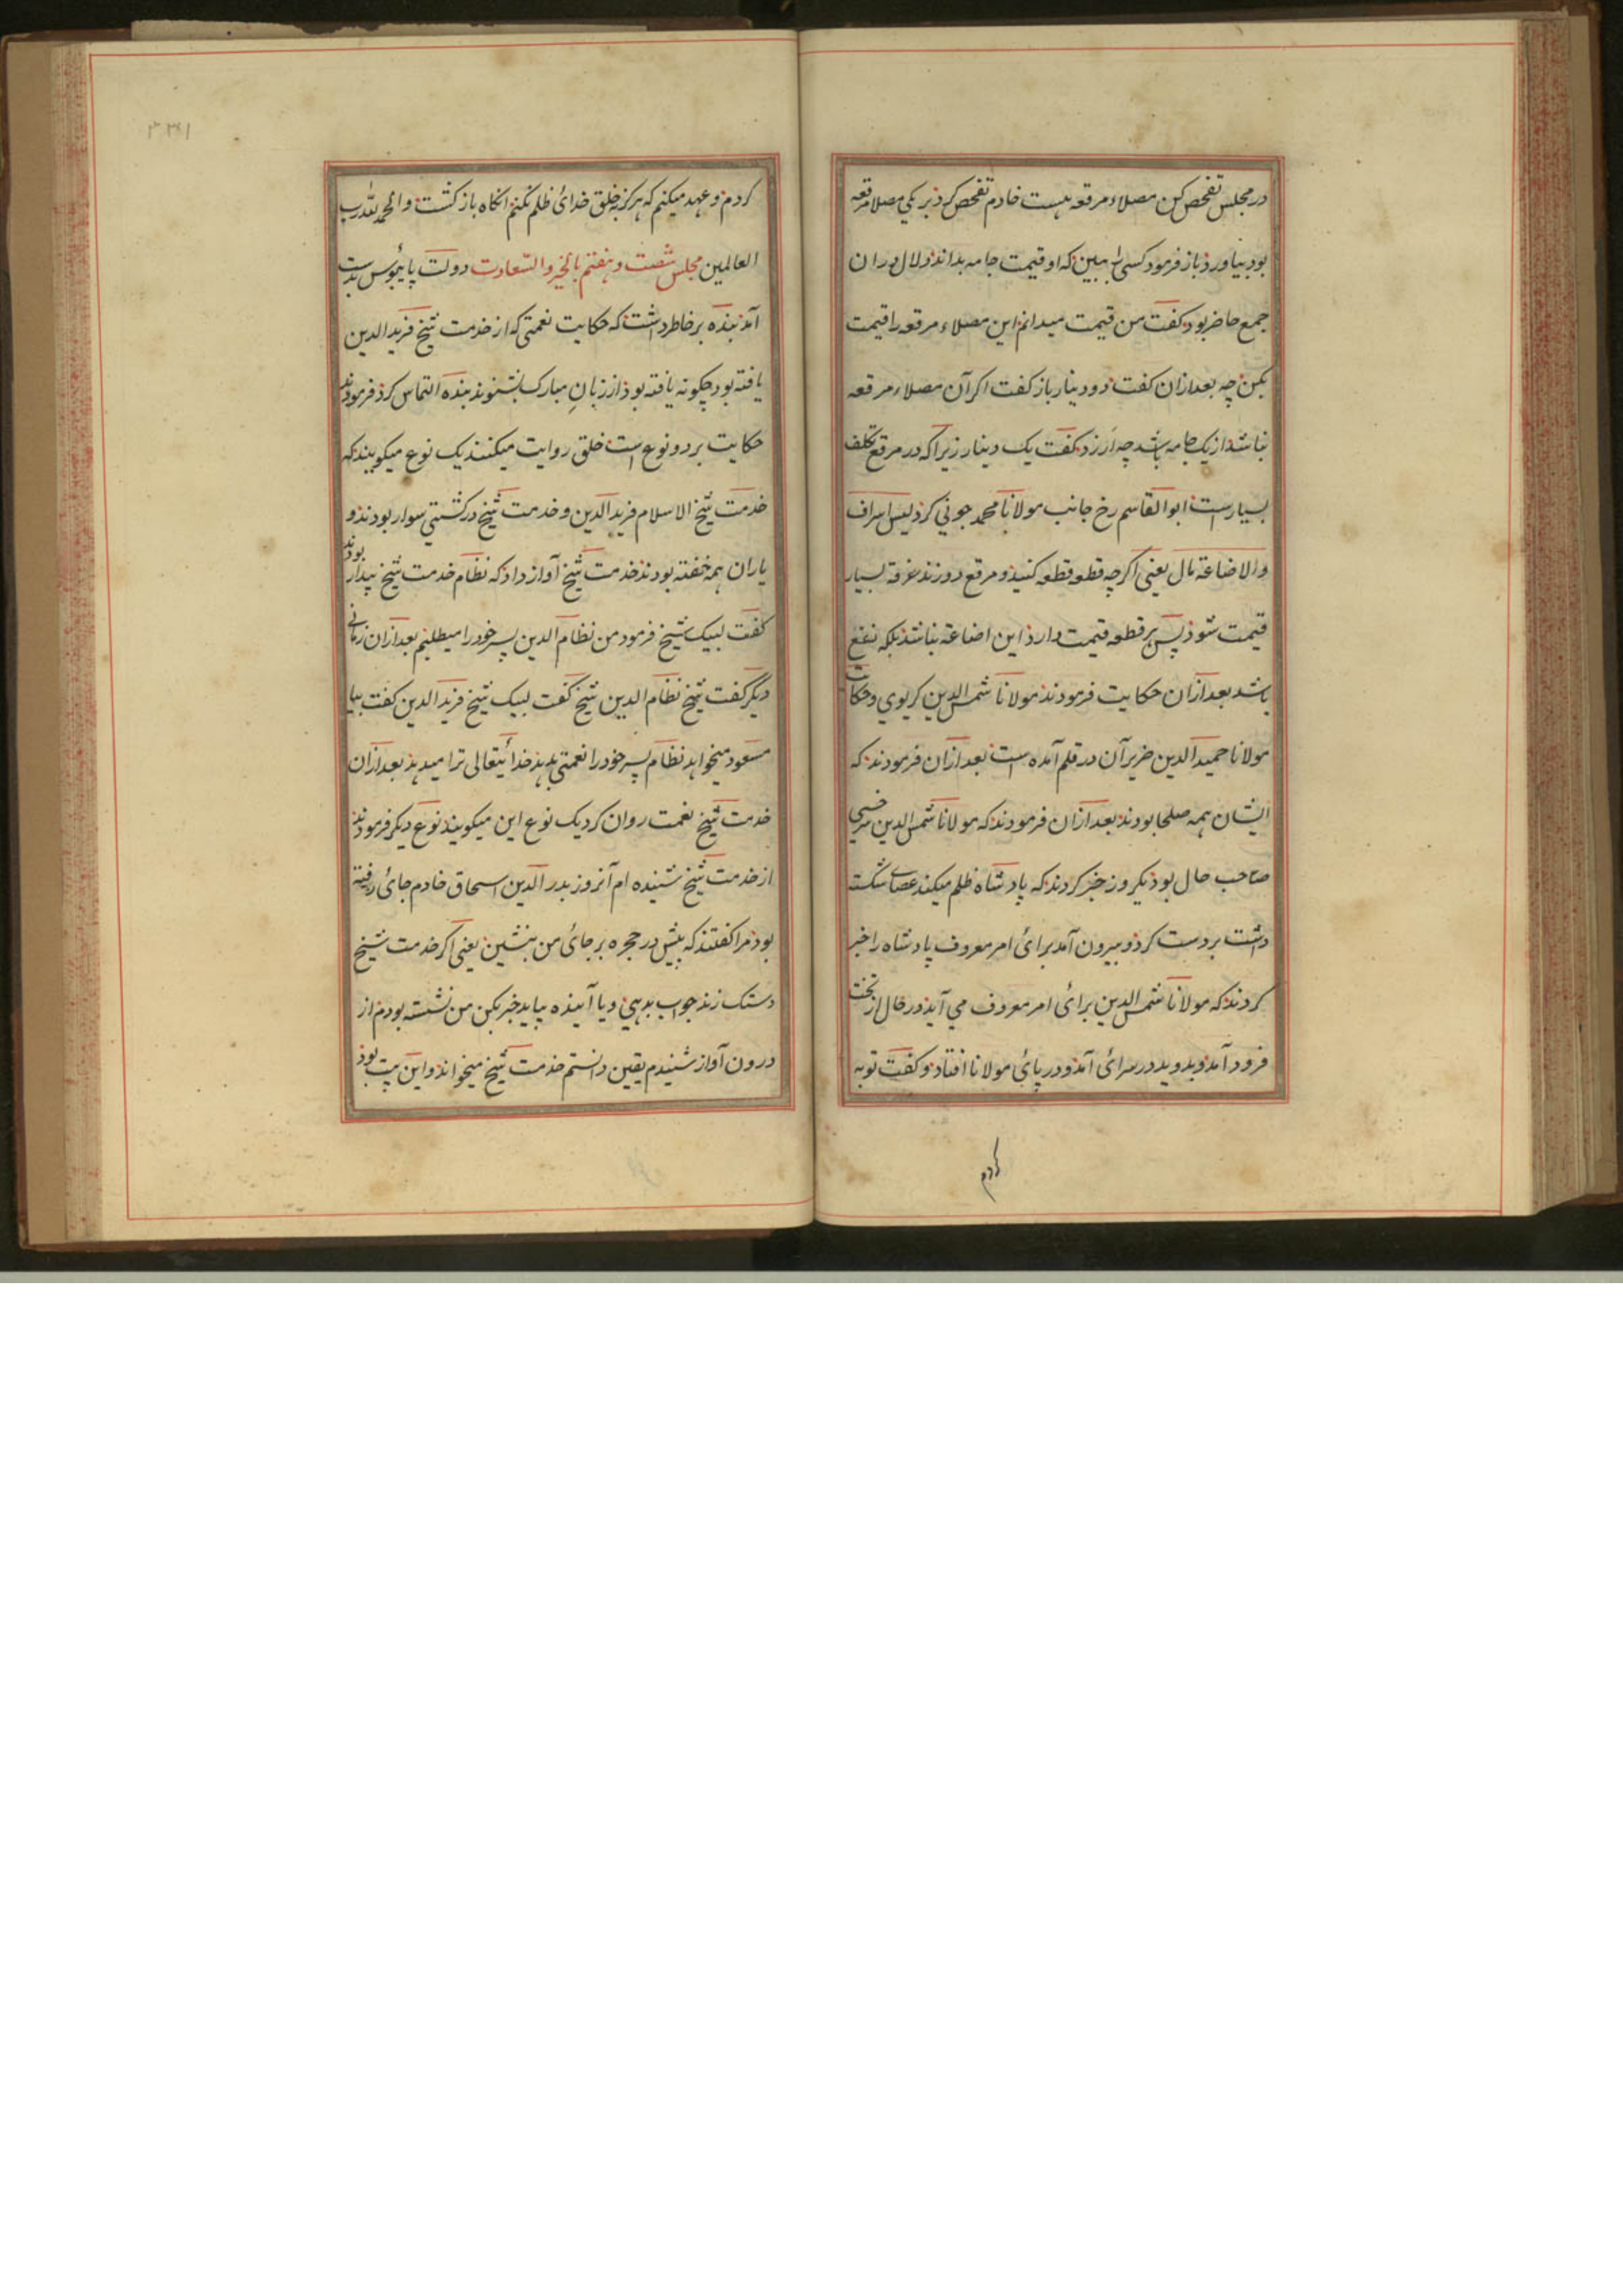 در مجلس تفحص کن مصلاء مرقعه هست خادم تفحص کرد بر یکی مصلا مرقعه
بود بیاورد باز فرمود کسی را ببین که او قیمت جامه بداند دلال دران
جمع حاضر بود گفت من قیمت میدانم این مصلاء مرقعه را قیمت
بکن چه بعد ازان گفت دو دینار باز گفت اگر آن مصلاء مرقعه
نباشد از یک جامه باشد چه ارزد گفت یک دینار زیرا که در مرقع تکلف
بسیار است ابو القاسم رخ جانب مولانا محمد جونی کرد لیس اسراف
والاضاعة مال یعنی اگرچه قطعه قطعه کنید و مرقع دوزند خرقه بسیار
قیمت شود پس هر قطعه قیمت دارد این اضاعة نباشد بلکه نفع
باشد بعد ازان حکایت فرمودند مولانا شمس الدین کریوی و حکایت
مولانا حمید الدین ضریر آن در قلم آمده است بعد ازان فرمودند که
ایشان همه صلحا بودند بعد ازان فرمودند که مولانا شمس الدین سرخسی
صاحب حال بود یکروز خبر کردند که پادشاه ظلم میکند عصای شکسته
داشت بر دست کرد و بیرون آمد برای امر معروف پادشاه را خبر
کردند که مولانا شمس الدین برای امر معروف می آید در حال از تخت
فرود آمد و بدوید در سرای آمد و در پای مولانا افتاد و گفت توبه
کردم
۳۳۱
کردم و عهد میکنم که هرگز بخلق خدای ظلم نکنم انگاه باز گشت والحمد لله رب
العالمین مجلس شصت و هفتم بالخیر والسعادت دولت پایبوس بدست
آمد بنده بر خاطر داشت که حکایت نعمتی که از خدمت شیخ فرید الدین
یافته بود چگونه یافته بود از زبان مبارک بشنوند بنده التماس کرد فرمودند
حکایت بر دو نوع است خلق روایت میکنند یک نوع میگویند که
خدمت شیخ الاسلام فرید الدین و خدمت شیخ در کشتی سوار بودند و
یاران همه خفته بودند خدمت شیخ آواز داد که نظام خدمت شیخ بیدار بودند
گفت لبیک شیخ فرمود من نظام الدین پسر خود را میطلبم بعد ازان زمانی
دیگر گفت شیخ نظام الدین شیخ گفت لبیک شیخ فرید الدین گفت بیا
مسعود میخواهد نظام پسر خود را نعمتی بدهد خدایتعالی ترا میدهد بعد ازان
خدمت شیخ نعمت روان کرد یک نوع این میگویند نوع دیگر فرمودند
از خدمت شیخ شنیده ام آنروز بدر الدین اسحاق خادم جای رفته
بود مرا گفتند که پیش در حجره بر جای من بنشین یعنی اگر خدمت شیخ
دستک زند جواب بدهی و یا آینده بیاید خبر بکن من نشسته بودم از
درون آواز شنیدم یقین دانستم خدمت شیخ میخواند و این بیت بود